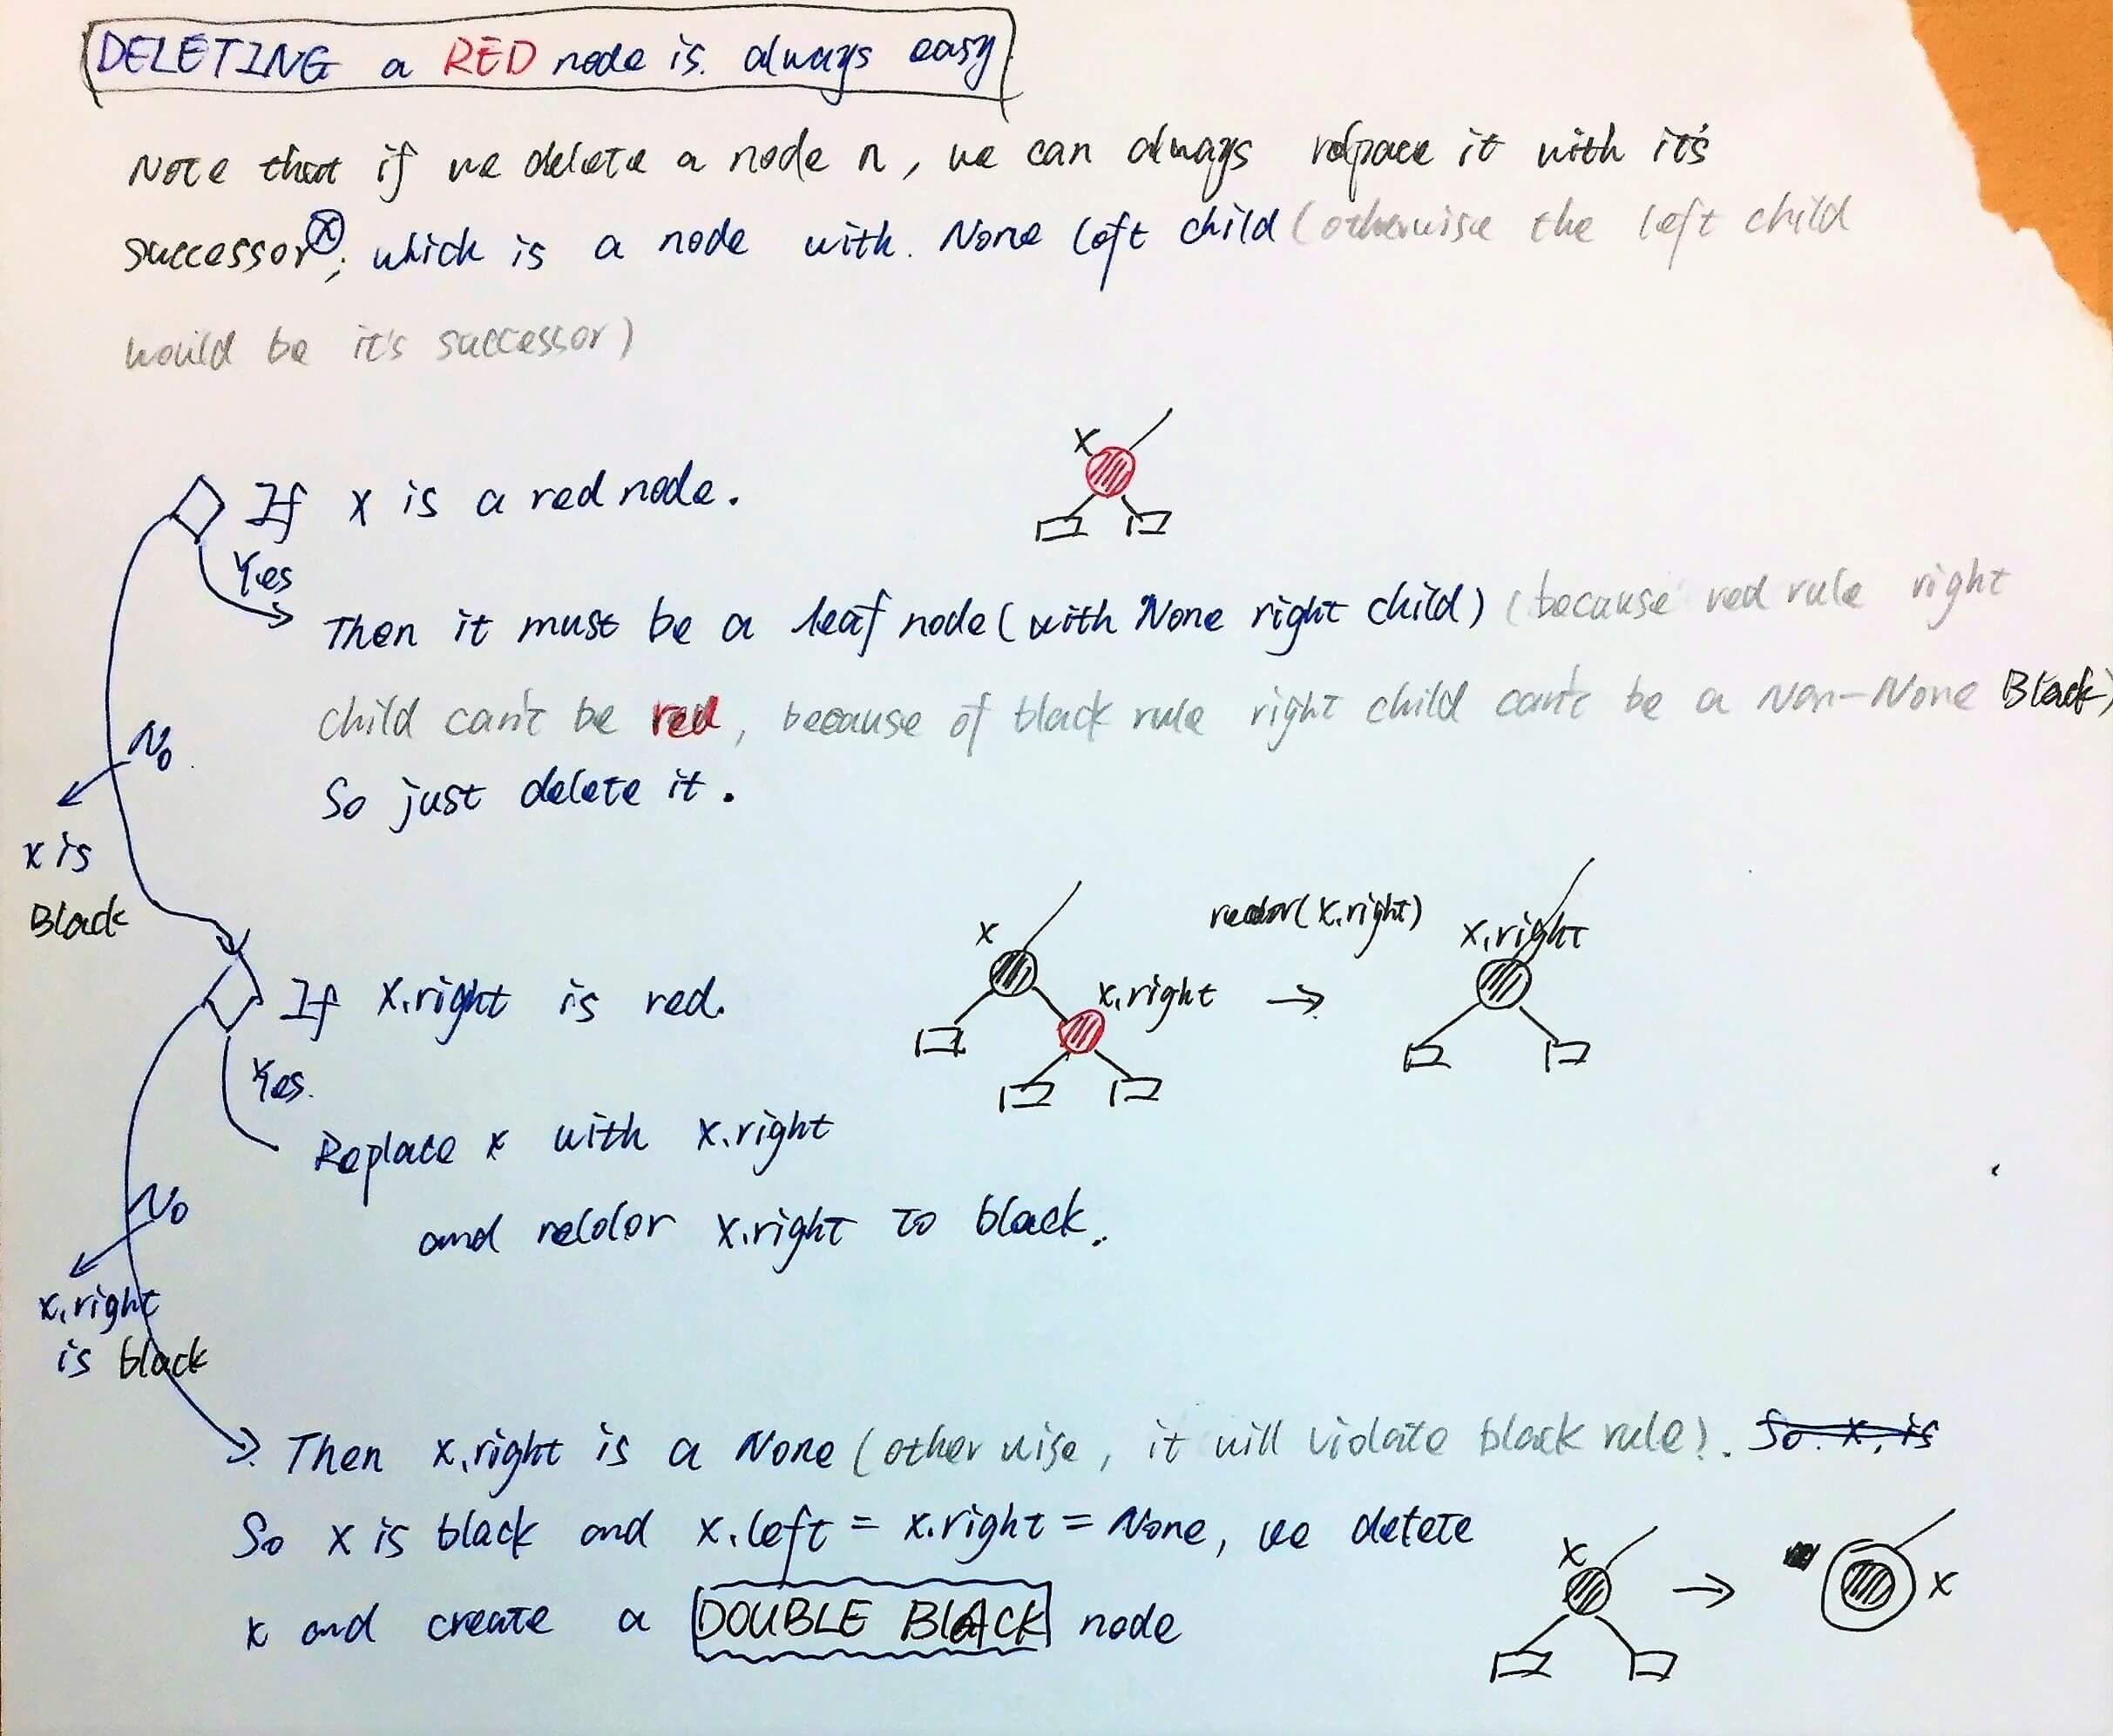 DELETING a RED node is. always easy
Note that if we delete a node n, we can always relpace it with it's
successor ⓧ, which is a node with. None left child (otherwise the left child
would be it's successor)
X
If X is a red node.
Yes
Then it must be a leaf node (with None right child) (because red rule right
child can't be red, because of black rule right child can't be a Non-None Black)
No
So just delete it.
x is
Black
x
recolor(x.right)
x.right
x.right
If X.right is red.
Yes.
Replace x with x.right
No
and recolor x.right to black.
x.right
is black
Then x.right is a None (otherwise, it will violate black rule). So. x. is
So x is black and x.left = x.right = None, we delete
x
x
x and create a DOUBLE BLACK node